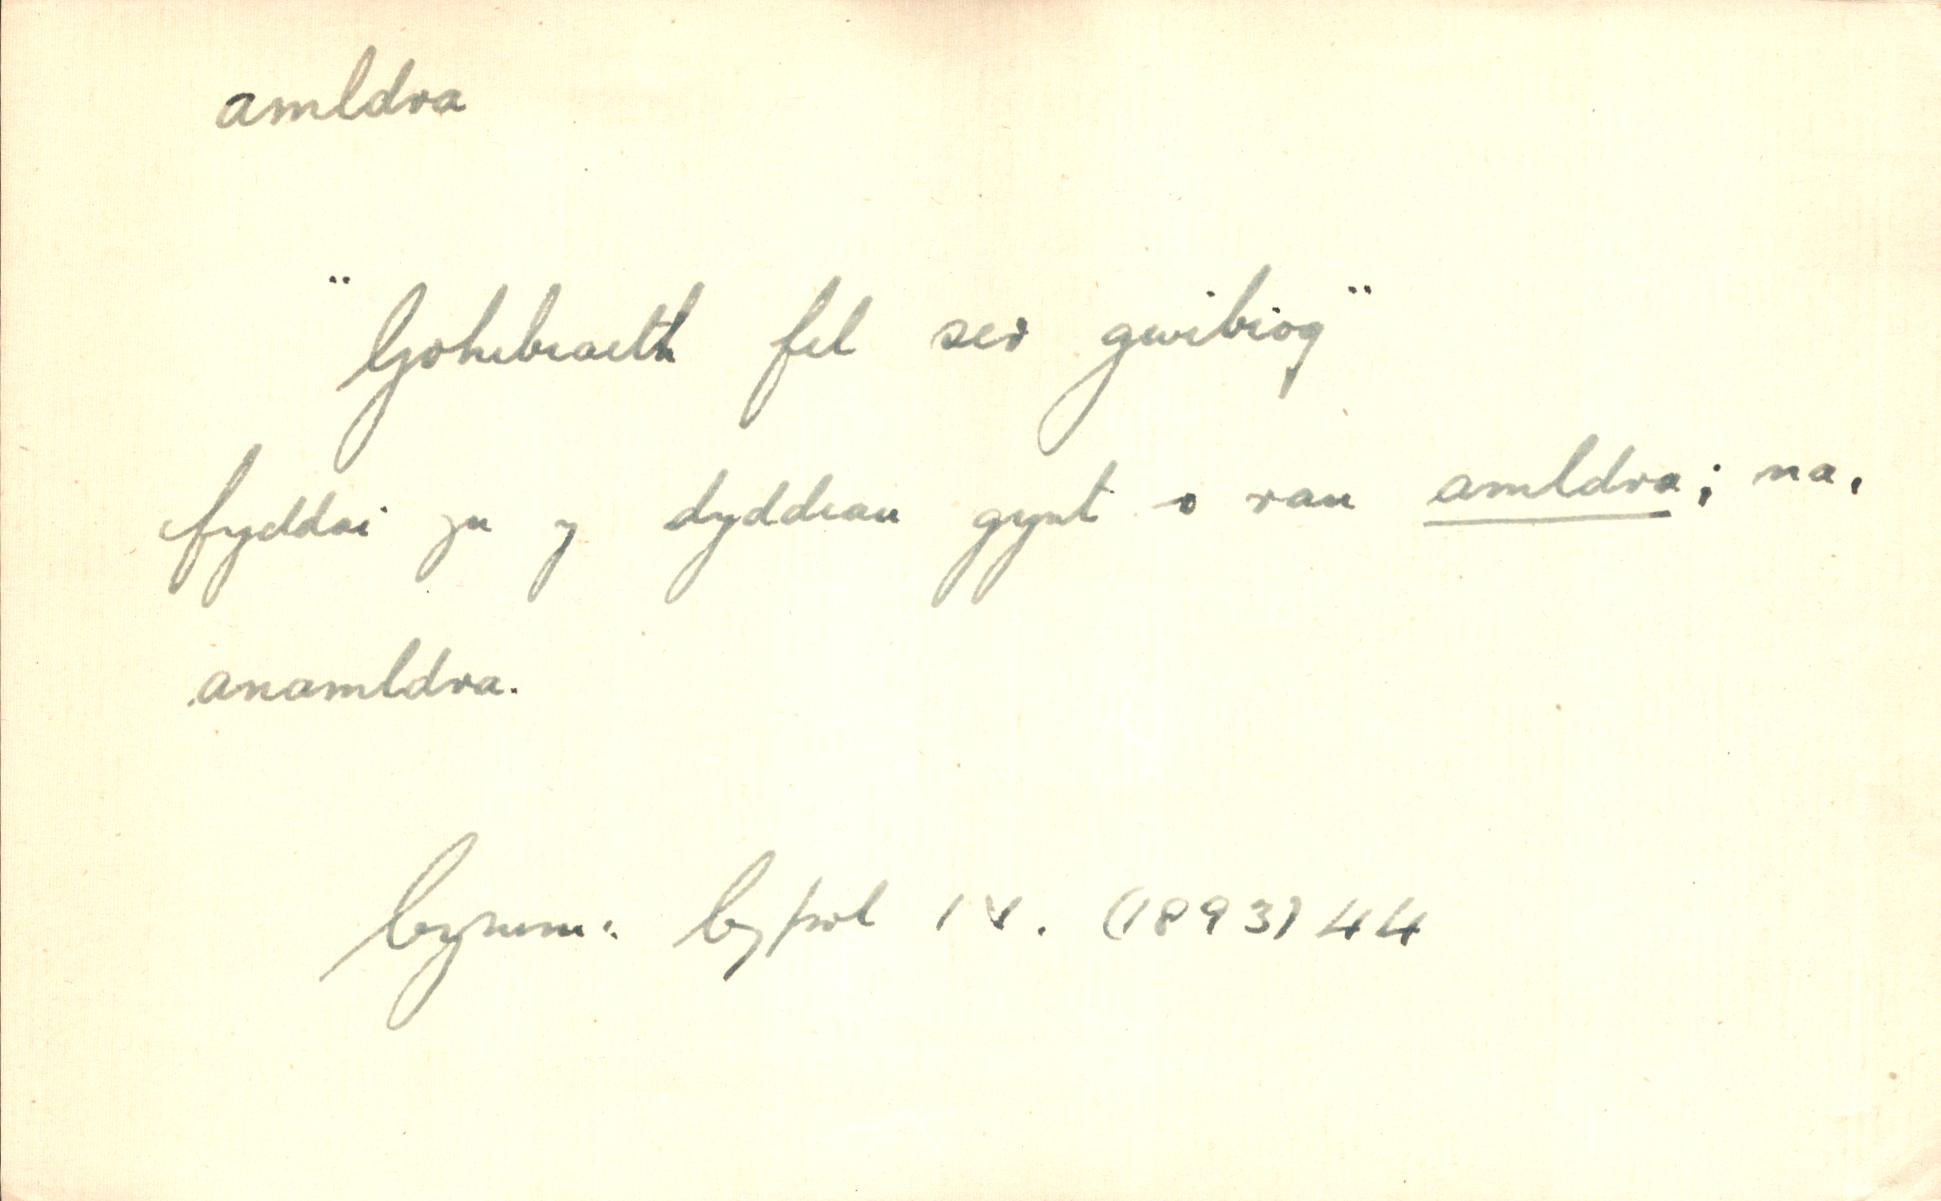 amldra
"Gohebiaeth fel ser gwibiog"
fyddai yn y dyddiau gynt o ran amldra; na,
anamldra.
Cymm: Cypol IV. (1893) 44